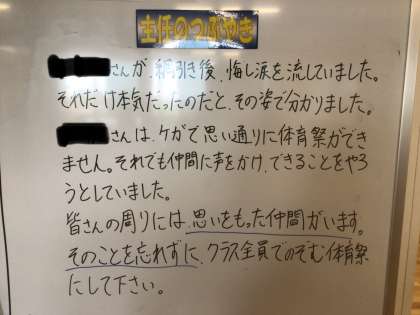 主任のつぶやき
さんが、綱引き後、悔し涙を流していました。
それだけ本気だったのだと、その姿で分かりました。
さんは、ケガで思い通りに体育祭ができ
ません。それでも仲間に声をかけ、できることをやろ
うとしていました。
皆さんの周りには、思いをもった仲間がいます。
そのことを忘れずに、クラス全員でのぞむ体育祭
にして下さい。